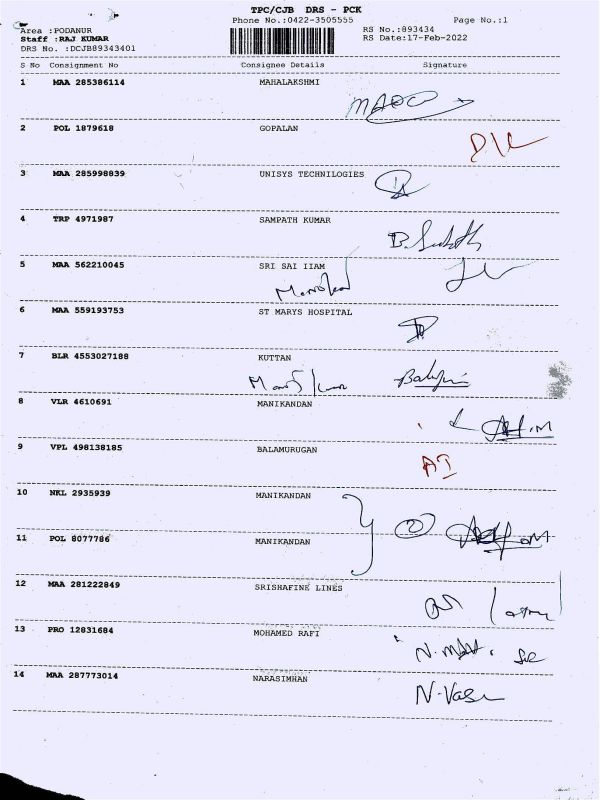 TPC/CJB DRS - PCK
Phone No.:0422-3505555 Page No.:1
Area :PODANUR RS No.:893434
Staff :RAJ KUMAR RS Date:17-Feb-2022
DRS No. :DCJB89343401
S No Consignment No Consignee Details Signature
1 MAA 285386114 MAHALAKSHMI
2 POL 1879618 GOPALAN
3 MAA 285998839 UNISYS TECHNILOGIES
4 TRP 4971987 SAMPATH KUMAR
5 MAA 562210045 SRI SAI IIAM
6 MAA 559193753 ST MARYS HOSPITAL
7 BLR 4553027188 KUTTAN
8 VLR 4610691 MANIKANDAN
9 VPL 498138185 BALAMURUGAN
10 NKL 2935939 MANIKANDAN
11 POL 8077786 MANIKANDAN
12 MAA 281222849 SRISHAFINE LINES
13 PRO 12831684 MOHAMED RAFI
14 MAA 287773014 NARASIMHAN